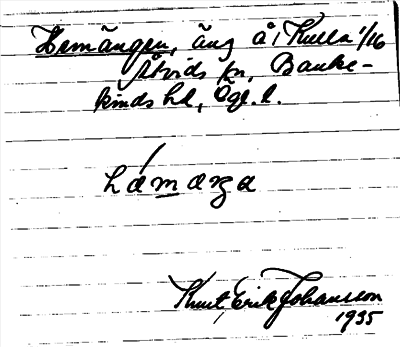 Hemängen, äng å 1 Kulla 1/16
Åtvids sn, Banke-
kinds hd, Ögl. l.
hámæŋa
Knut Erik Johansson
1935